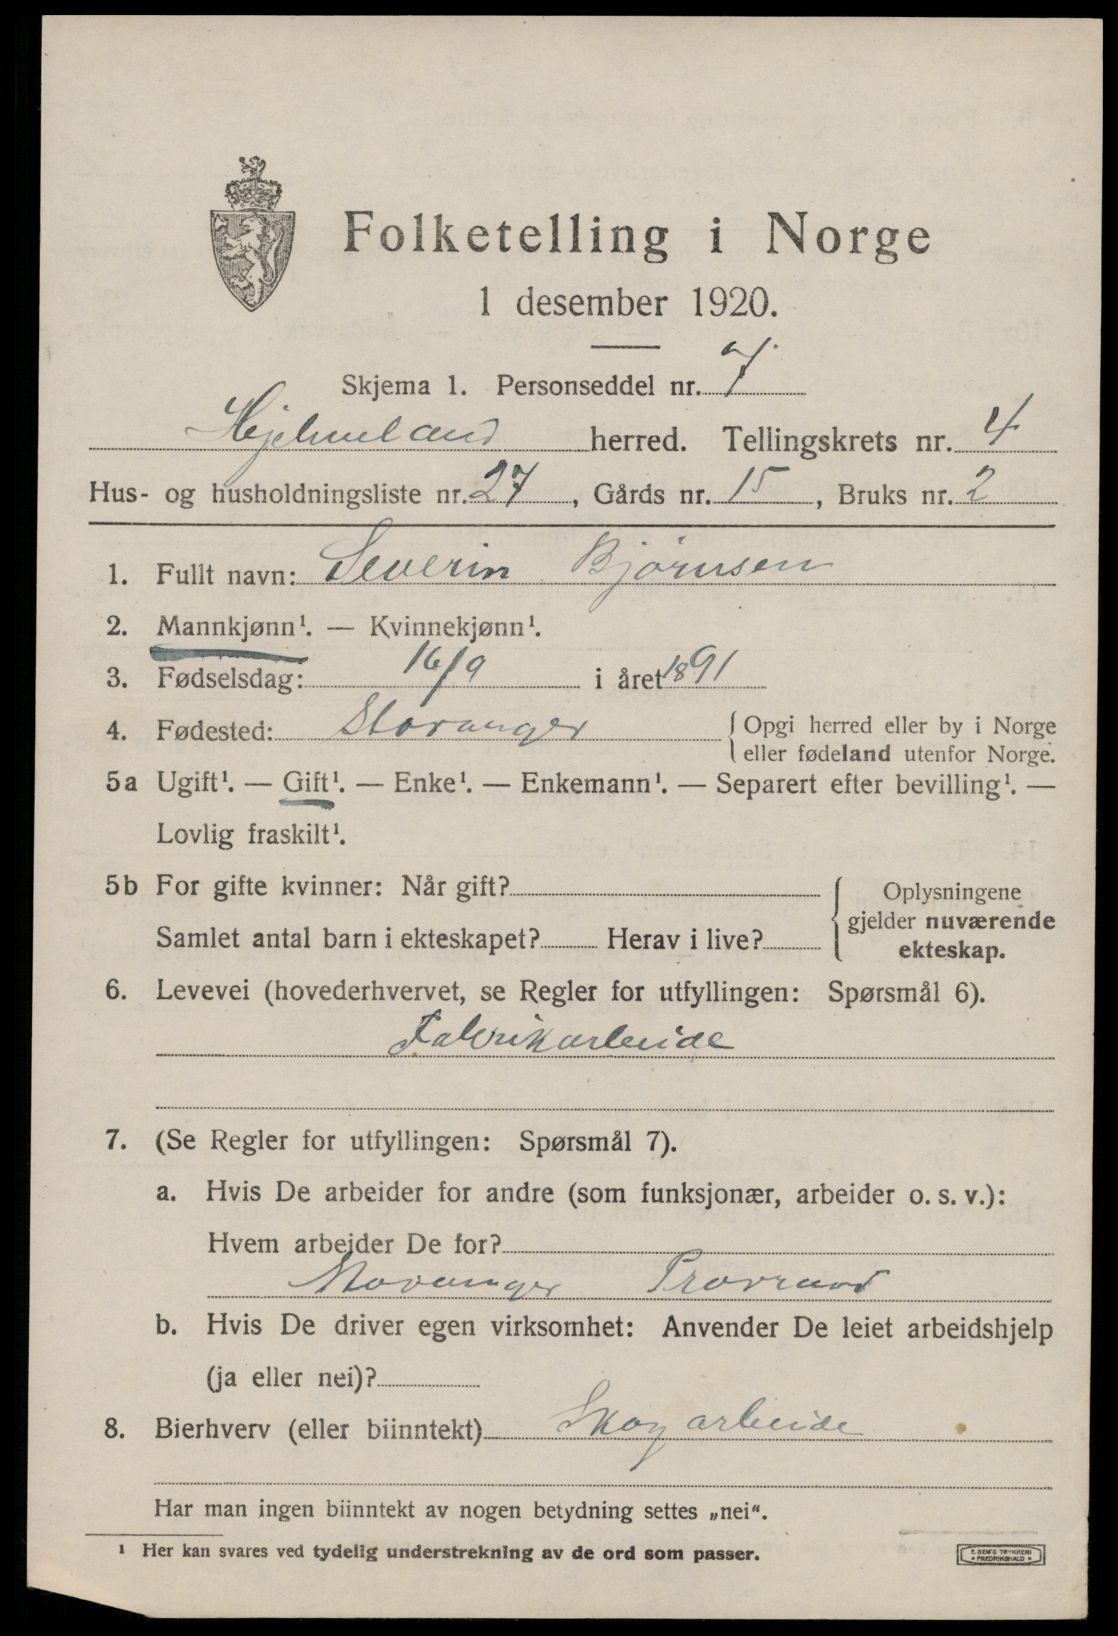 Folketelling i Norge
1 desember 1920.
Skjema 1. Personseddel nr. 7
Hjelmeland herred. Tellingskrets nr. 4
Hus- og husholdningsliste nr. 27, Gårds nr. 15, Bruks nr. 2
1. Fullt navn: Severin Bjørnsen
2. Mannkjønn¹. — Kvinnekjønn¹.
3. Fødselsdag: 16/9 i året 1891
4. Fødested: Stavanger { Opgi herred eller by i Norge
eller fødeland utenfor Norge.
5a Ugift¹. — Gift¹. — Enke¹. — Enkemann¹. — Separert efter bevilling¹. —
Lovlig fraskilt¹.
5b For gifte kvinner: Når gift?
Samlet antal barn i ekteskapet? Herav i live?
Oplysningene
gjelder nuværende
ekteskap.
6. Levevei (hovederhvervet, se Regler for utfyllingen: Spørsmål 6).
Fabrikarbeide
7. (Se Regler for utfyllingen: Spørsmål 7).
a. Hvis De arbeider for andre (som funksjonær, arbeider o. s. v.):
Hvem arbeider De for?
Stavanger
b. Hvis De driver egen virksomhet: Anvender De leiet arbeidshjelp
(ja eller nei)?
8. Bierhverv (eller biinntekt) Skog arbeide
Har man ingen biinntekt av nogen betydning settes „nei“.
¹ Her kan svares ved tydelig understrekning av de ord som passer.
E. SEM'S TRYKKERI
FREDRIKSHALD